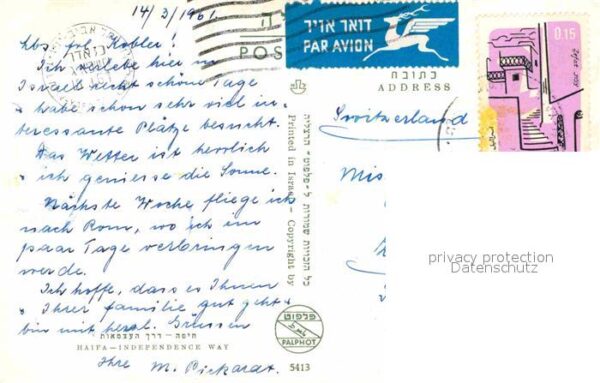 14/3/1961
Lbs. frl. Kobler!
Ich verlebe hier in
Israel recht schöne Tage
+ habe schon sehr viel in-
teressante Plätze besucht.
Das Wetter ist herrlich
+ ich geniesse die Sonne.
Nächste Woche fliege ich
nach Rom, wo ich ein
paar Tage verbringen
werde.
Ich hoffe, dass es Ihnen
+ Ihrer familie gut geht +
bin mit herzl. Grüssen
Ihre M. Pickardt.
חיפה – דרך העצמאות
HAIFA—INDEPENDENCE WAY
5413
פלפוט
PALPHOT
Printed in Israel - Copyright by
כל הזכויות שמורות ל-פלפוט- הרצליה
POS
דואר אויר
PAR AVION
כתובת
ADDRESS
0.15
Switzerland
Mis
privacy protection
Datenschutz